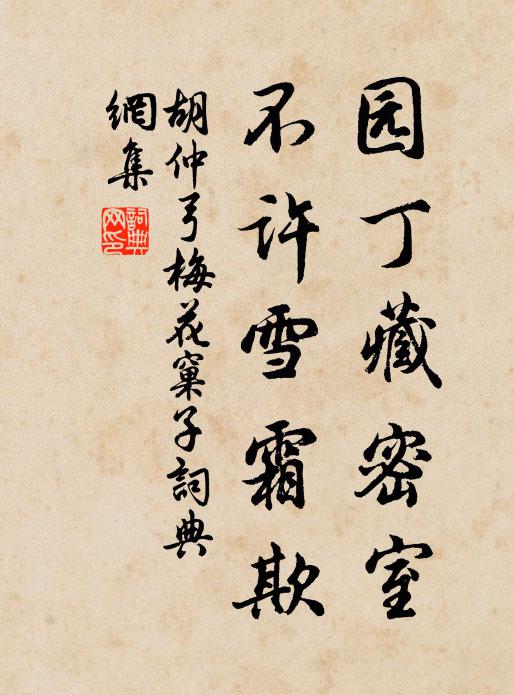 园丁藏密室
不许雪霜欺
胡仲弓梅花窠子詞典
網集
詞典網印